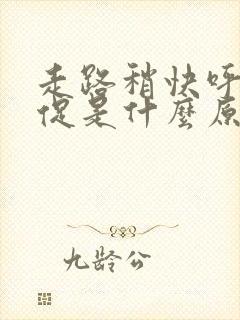 走路稍快呼
促是什麼原
九龄公